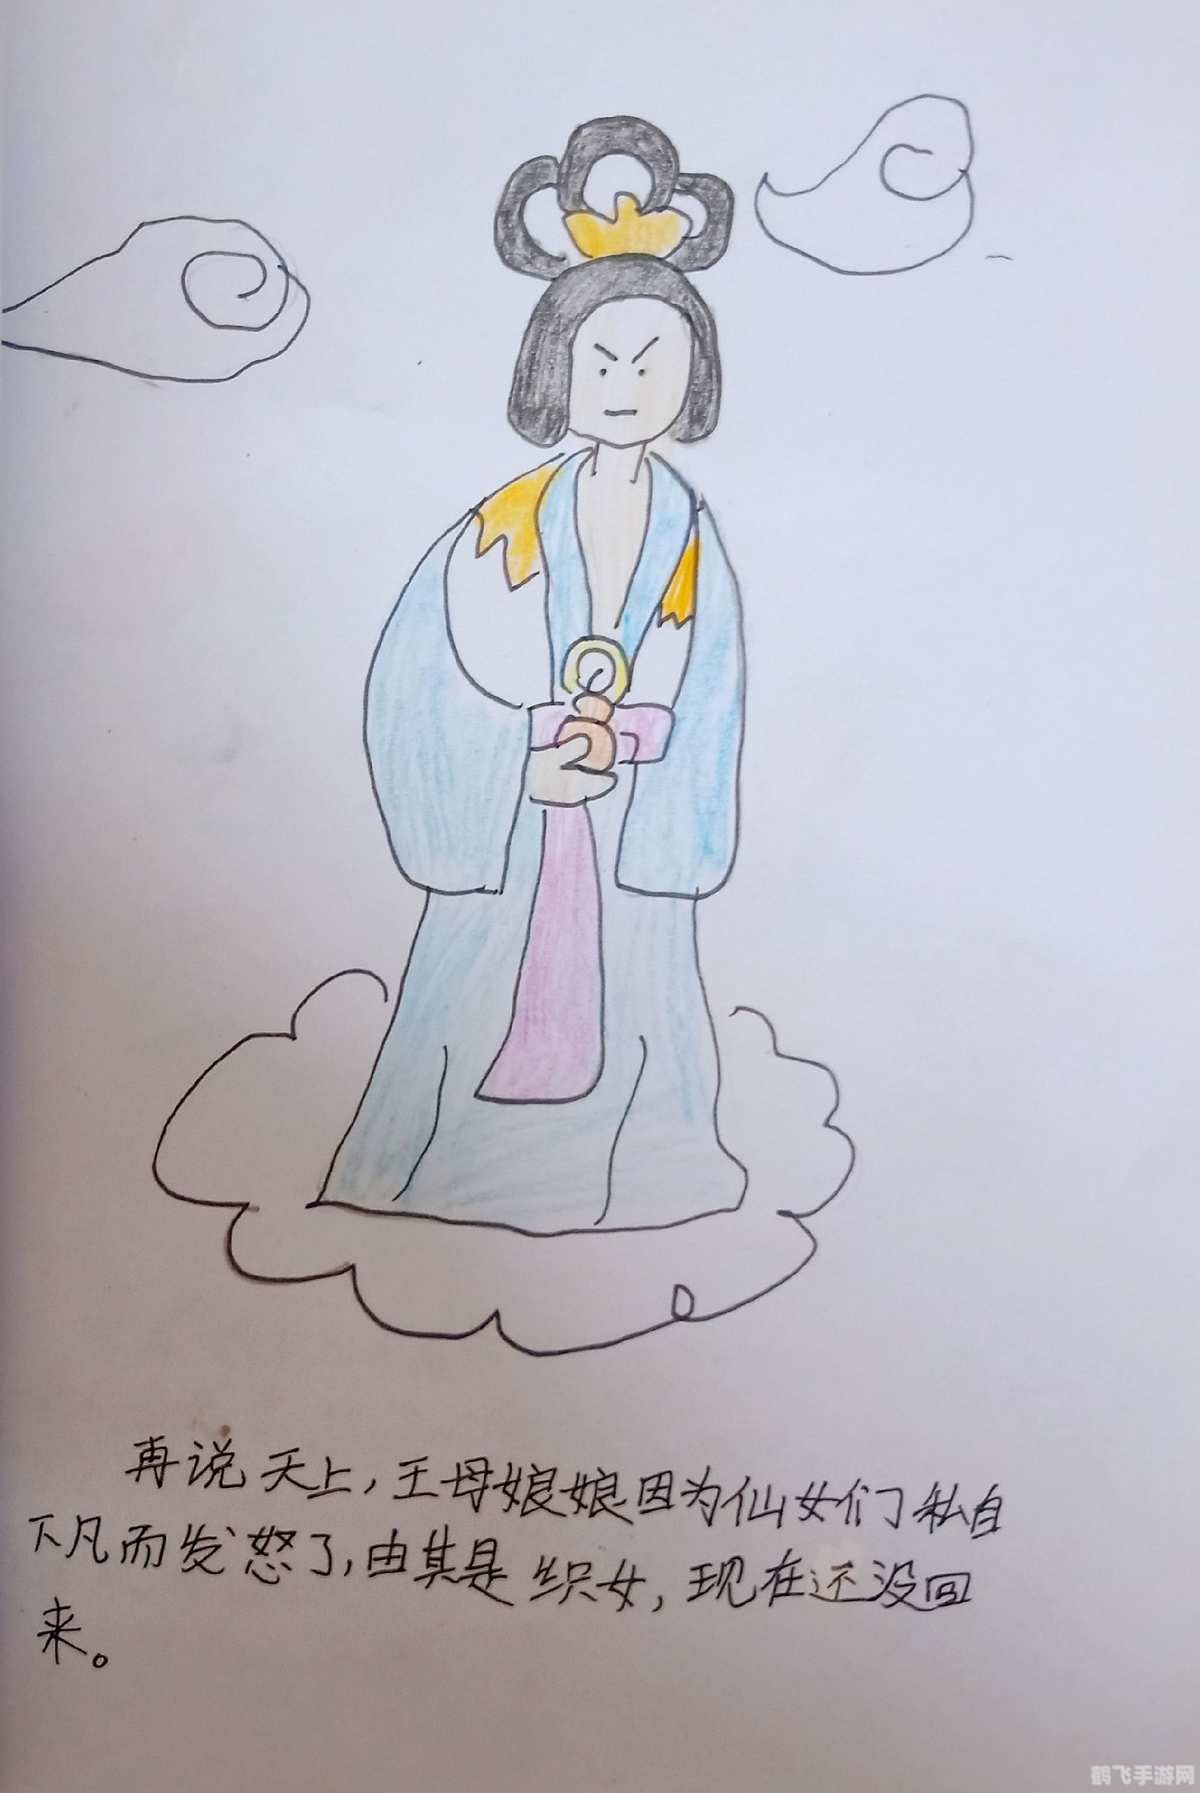 再说天上，王母娘娘因为仙女们私自
下凡而发怒了，由其是织女，现在还没回
来。
鹤飞手游网